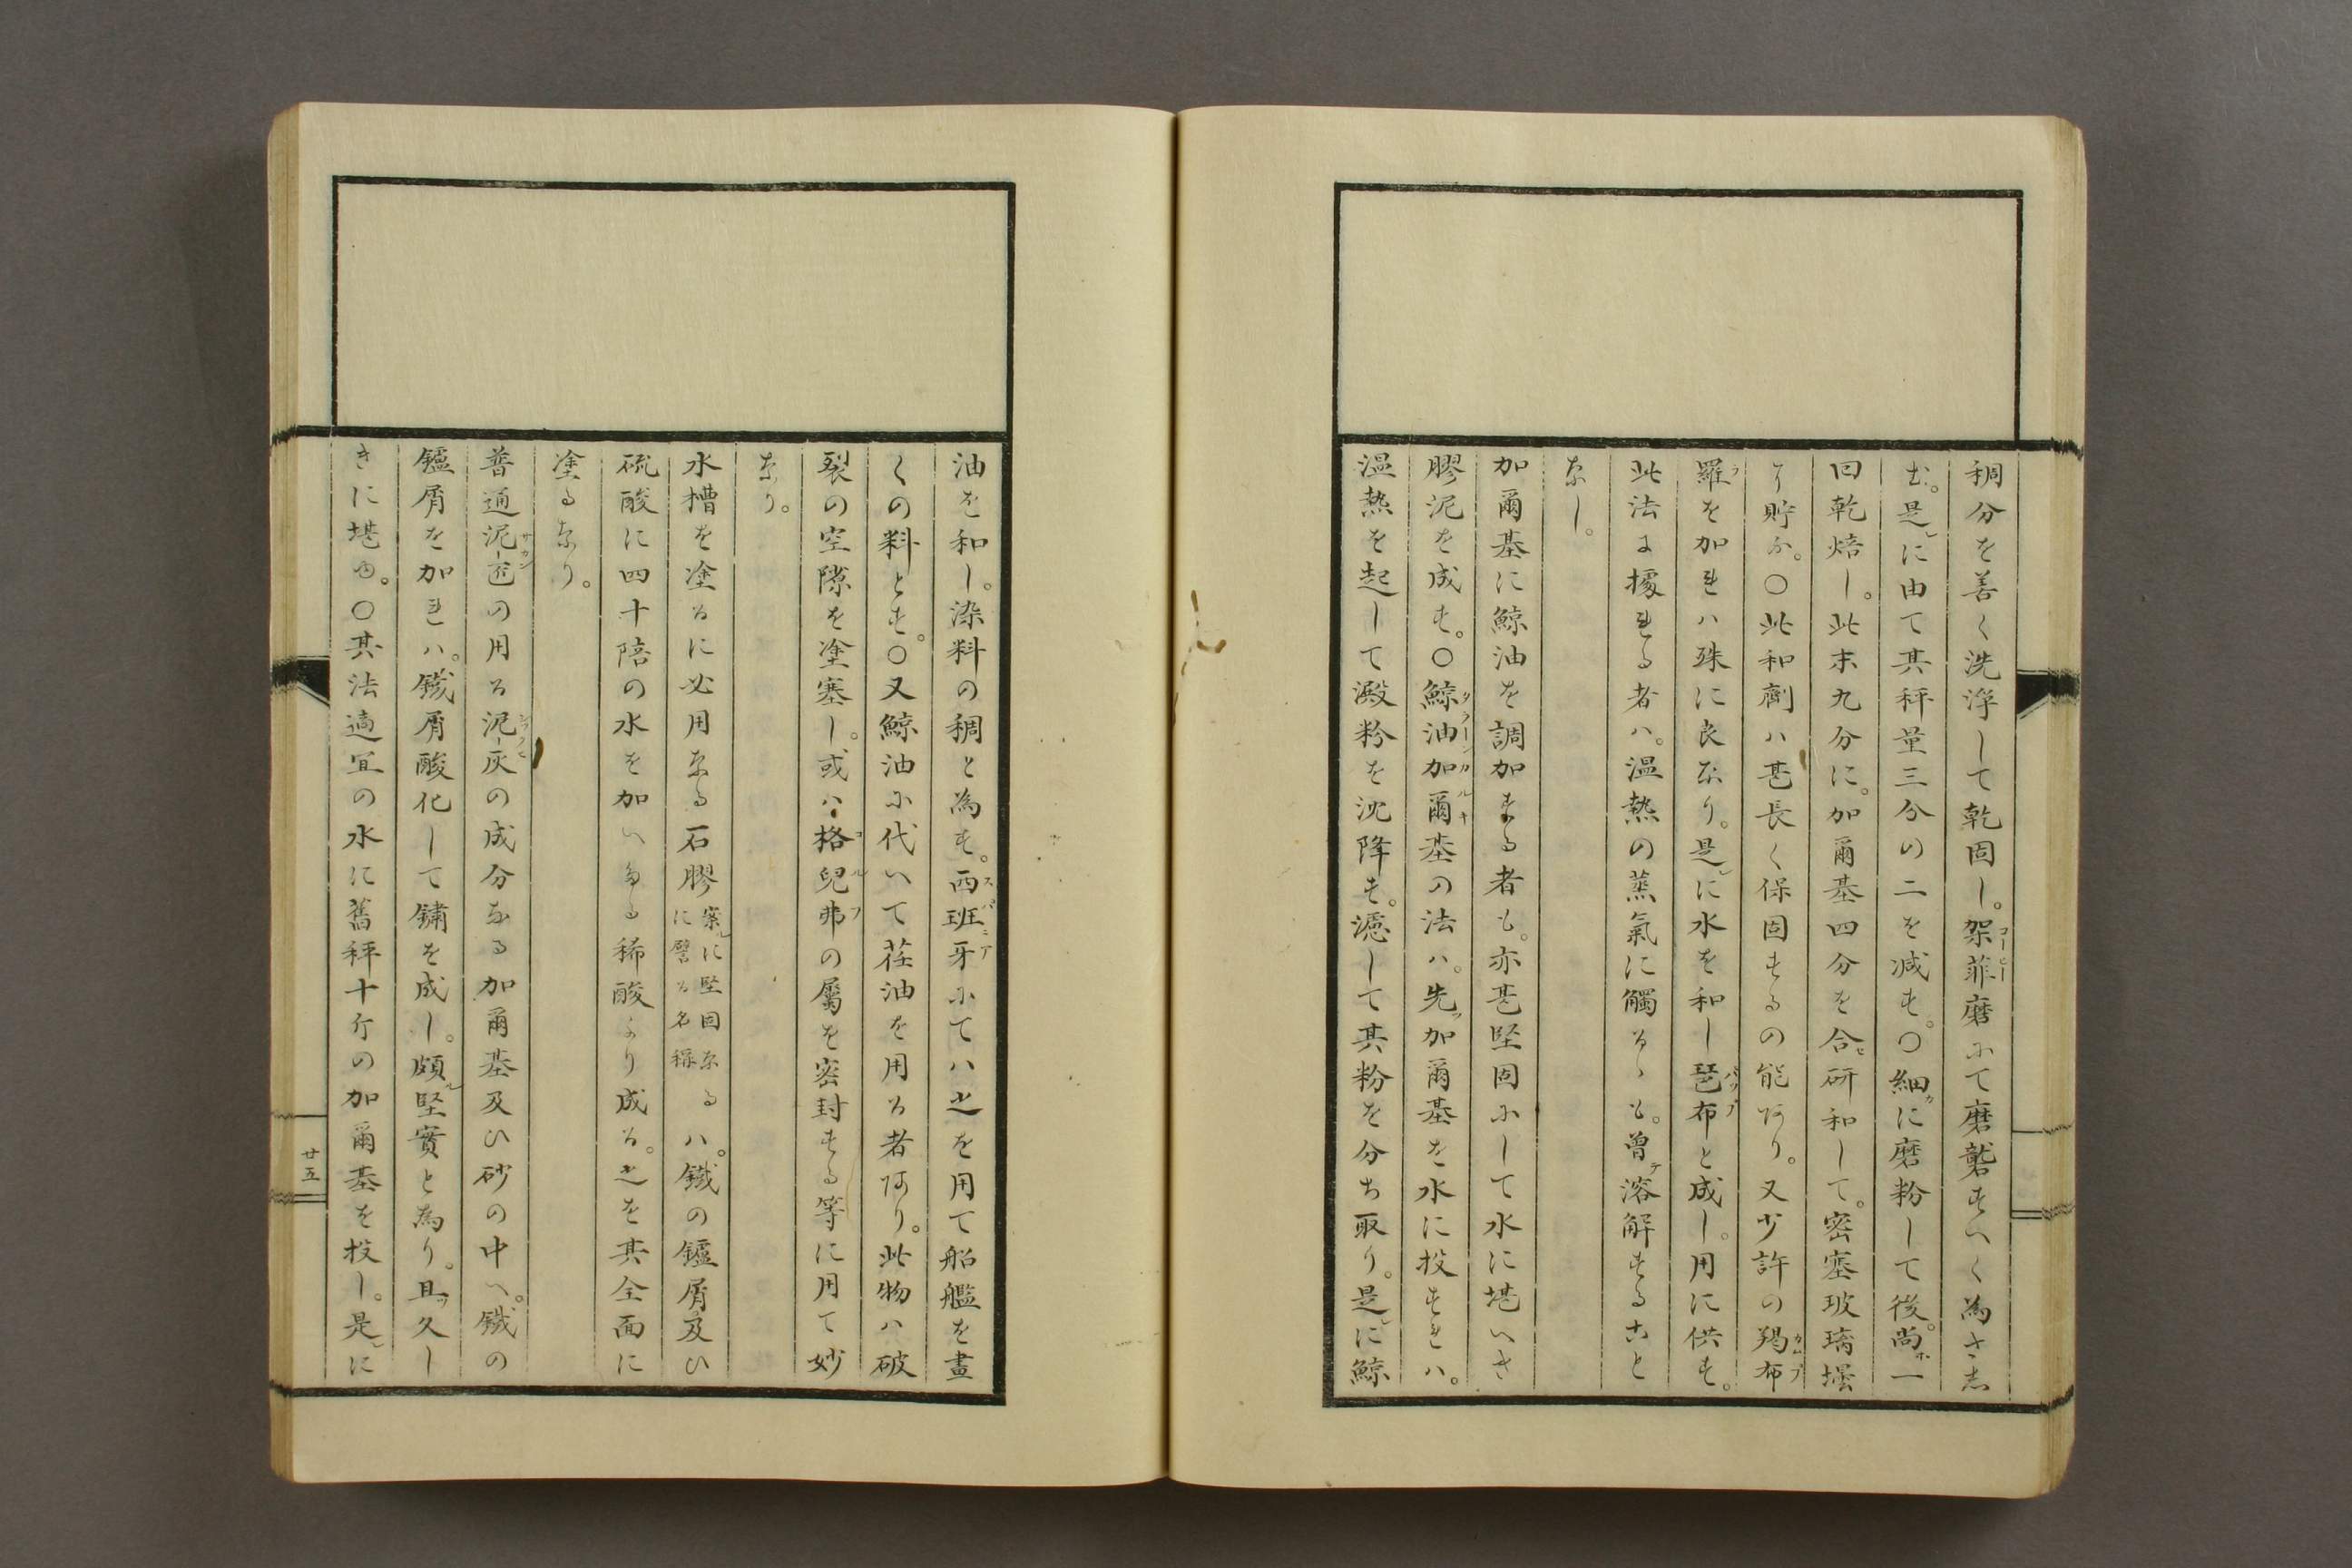 稠分を善く洗浄して乾固し。架菲磨にて磨礱すへく為さし
む。是レに由て其秤量三分の二を減す。〇細カに磨粉して後。尚ホ一
回乾焙し。此末九分に。加爾基四分を合ヒ研和して。密塞玻璃壜
に貯ふ。〇此和劑ハ甚長く保固するの能あり。又少許の羯布
羅を加れハ殊に良なり。是レに水を和し琶布と成し。用に供す。
此法に據れる者ハ。温熱の蒸氣に觸るゝも。曽テ溶解すること
なし。
加爾基に鯨油を調加する者も。亦甚堅固にして水に堪へき
膠泥を成す。〇鯨油加爾基の法ハ。先ツ加爾基を水に投すれハ。
温熱を起して澱粉を沈降す。濾して其粉を分ち取り。是レに鯨
油を和し。染料の稠と為す。西班牙にてハ之を用て船艦を畫
くの料とす。〇又鯨油に代いて荏油を用る者あり。此物ハ破
裂の空隙を塗塞し。或ハ格兒弗の屬を密封する等に用て妙
なり。
水槽を塗るに必用なる石膠案レに堅固なるに譬る名稱ハ。鐵の鑪屑及ひ
硫酸に四十陪の水を加へたる稀酸より成る。之を其全面に
塗るなり。
普通泥匠の用る泥灰の成分なる加爾基及ひ砂の中へ。鐵の
鑪屑を加れハ。鐵屑酸化して鏽を成し。頗ル堅實と為り。且ツ久し
きに堪ゆ。〇其法適宜の水に舊秤十斤の加爾基を投し。是レに
廿五